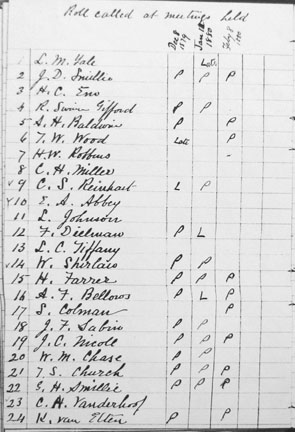 Roll called at meetings held
Dec 8 1879 Jan 12 1880 Feby 8
1 L. M. Yale Late
2 J. D. Smillie P P P
3 H. C. Eno
4 R. Swain Gifford P P
5 A. H. Baldwin P P
6 T. W. Wood Late P
7 H. W. Robbins -
8 C. H. Miller
v 9 C. S. Reinhart L P
v 10 E. A. Abbey
11 L. Johnson
12 F. Dielman P L
13 L. C. Tiffany
v 14 W. Shirlaw P P
15 H. Farrer P P P
16 A. F. Bellows P L P
17 S. Colman P
18 J. F. Sabin P P
19 J. C. Nicoll P P P
20 W. M. Chase P P
21 F. S. Church P P P
22 G. H. Smillie P P P
23 C. H. Vanderhoof
24 K. van Elten P P